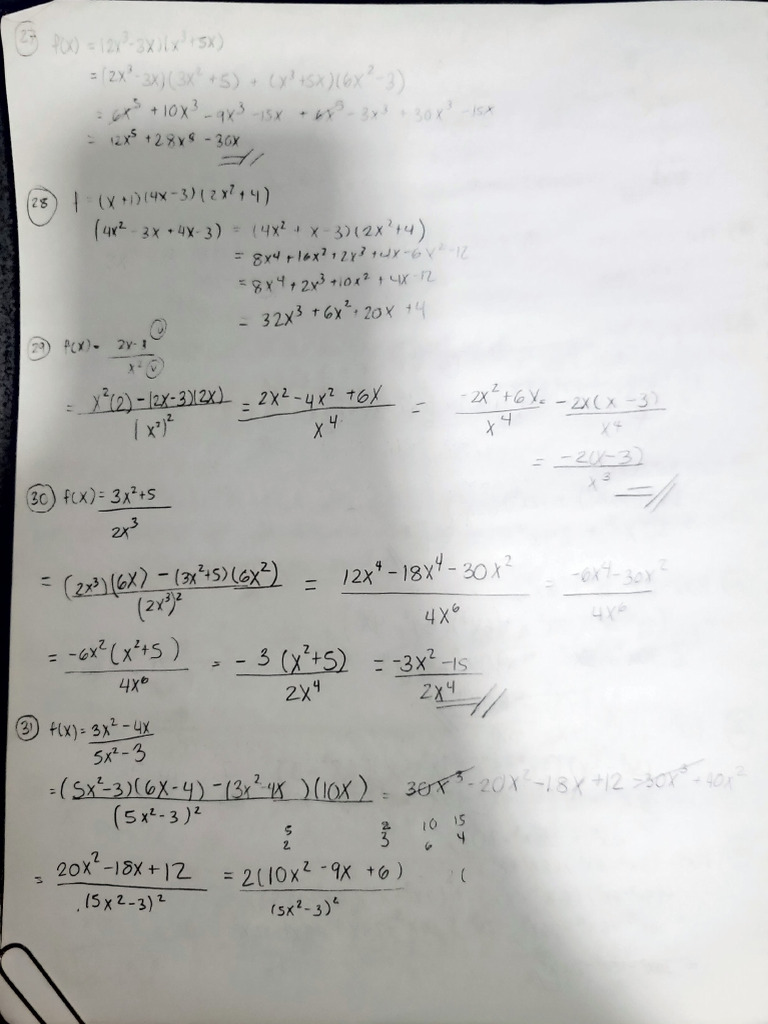 27 f(x) = (2x³-3x)(x³+5x)
= (2x³-3x)(3x²+5) + (x³+5x)(6x²-3)
= 6x⁵ + 10x³ - 9x³ - 15x + 6x⁵ - 3x³ + 30x³ - 15x
= 12x⁵ + 28x³ - 30x
28 f = (x+1)(4x-3)(2x²+4)
(4x² - 3x + 4x - 3) = (4x² + x - 3)(2x²+4)
= 8x⁴ + 16x² + 2x³ + 4x - 6x² - 12
= 8x⁴ + 2x³ + 10x² + 4x - 12
= 32x³ + 6x² + 20x + 4
29 f(x) = 2x-3 (u) / x² (v)
= x²(2) - (2x-3)(2x) / (x²)² = 2x² - 4x² + 6x / x⁴ = -2x² + 6x / x⁴ = -2x(x-3) / x⁴
= -2(x-3) / x³
30 f(x) = 3x²+5 / 2x³
= (2x³)(6x) - (3x²+5)(6x²) / (2x³)² = 12x⁴ - 18x⁴ - 30x² / 4x⁶ = -6x⁴ - 30x² / 4x⁶
= -6x²(x²+5) / 4x⁶ = -3(x²+5) / 2x⁴ = -3x² - 15 / 2x⁴
31 f(x) = 3x² - 4x / 5x² - 3
= (5x²-3)(6x-4) - (3x²-4x)(10x) / (5x²-3)² = 30x³ - 20x² - 18x + 12 - 30x³ + 40x²
5 2 10 15
2 3 6 4
= 20x² - 18x + 12 / (5x²-3)² = 2(10x² - 9x + 6) / (5x²-3)² (